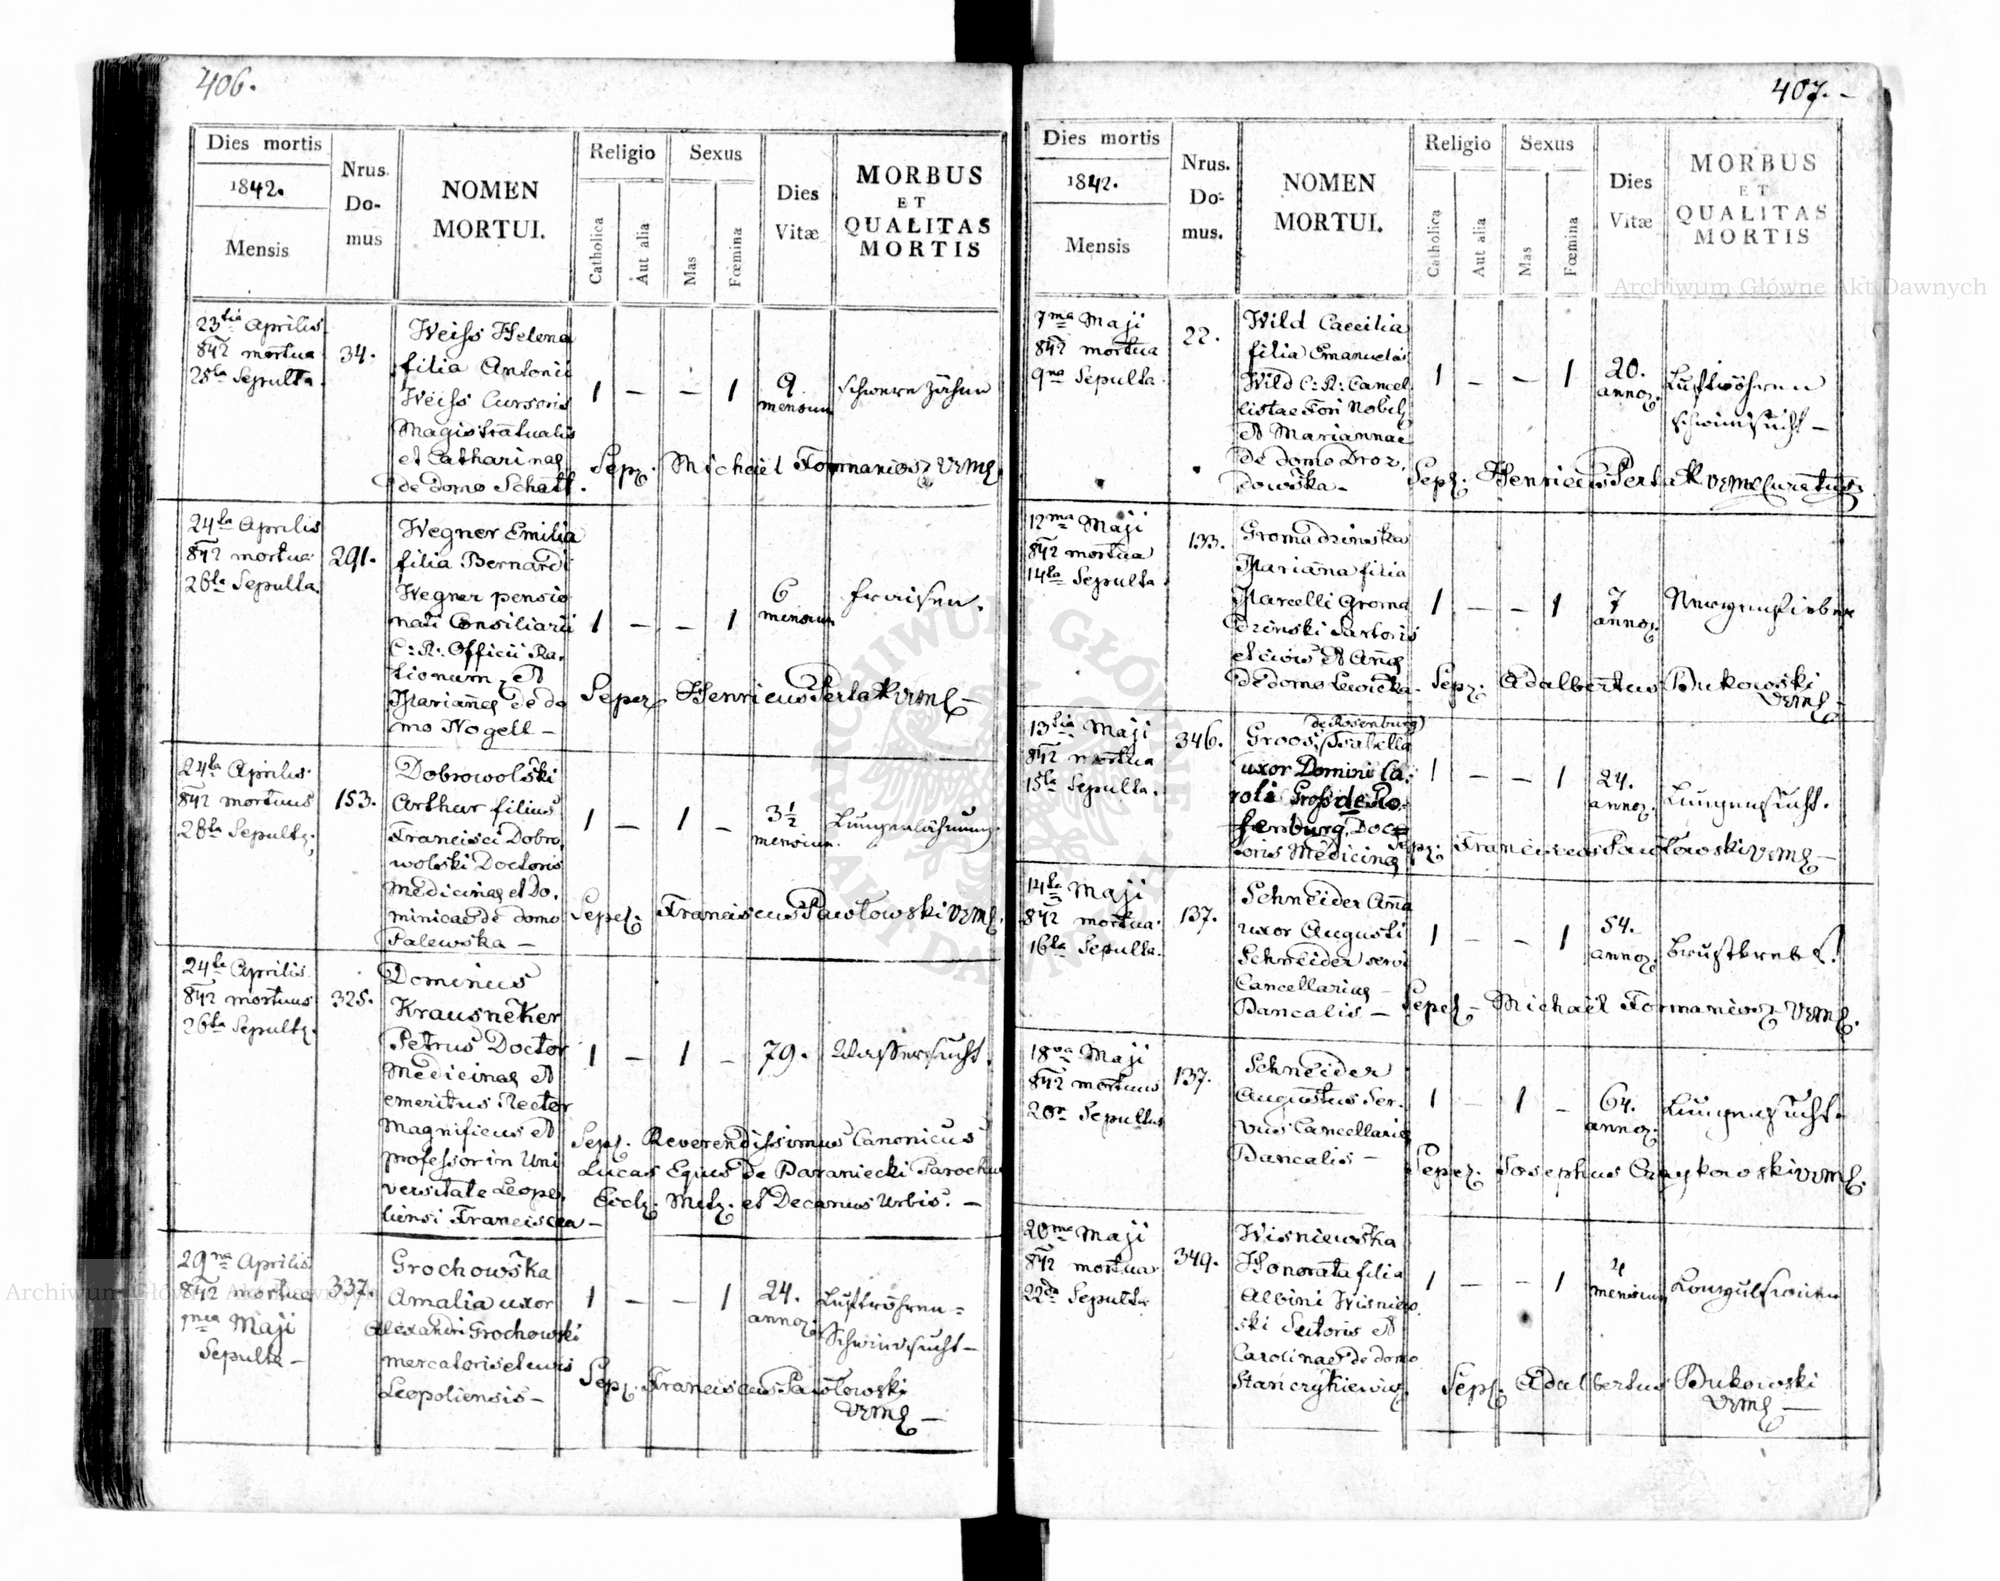 406.
Dies mortis
1842.
Mensis
Nrus.
Do-
mus
NOMEN
MORTUI.
Religio
Catholica
Aut alia
Sexus
Mas
Fœmina
Dies
Vitæ
MORBUS
ET
QUALITAS
MORTIS
23tia Aprilis
842 mortua
25ta Sepulta.
34.
Weiss Helena
filia Antonii
Weiss Cursoris
Magistratualis
et Catharinae
de domo Schatt.
1 — — 1
9
mensium
schwere Zähne
Sep. Michaël Formaniosz VRML
24ta Aprilis
842 mortua
26ta Sepulta.
291.
Wegner Emilia
filia Bernardi
Wegner pensio
nati Consiliarii
C: R: Officii Ra-
tionum, et
Mariañae de do
mo Nogell —
1 — — 1
6
mensium
Fraisen.
Sepel. Henricus Perlak VRML
24ta Aprilis
842 mortuus
28ta Sepult.
153.
Dobrowolski
Arthur filius
Francisci Dobro,
wolski Doctoris
Medicinae et Do,
minicae de domo
Palewska —
1 — 1 —
3½
mensium.
Lungenlähmung
Sepel. Franciscus Pawłowski VRML.
24ta Aprilis
842 mortuus
26ta Sepult.
325.
Dominus
Krausneker
Petrus Doctor
Medicinae et
emeritus Rector
Magnificus et
professor in Uni
versitate Leopo,
liensi Franciscea —
1 — 1 —
79.
Wassersucht.
Sepel. Reverendissimus Canonicus
Lucas Eques de Baraniecki Parochus
Eccl. Metr. et Decanus Urbis. —
29na Aprilis
842 mortua
1ma Maji
Sepulta —
337.
Grochowska
Amalia uxor
Alexandri Grochowski
mercatoris et civis
Leopoliensis —
1 — — 1
24.
annor.
Luftröhren=
Schwindsucht —
Sepel. Franciscus Pawłowski
VRML —
407. -
Dies mortis
1842.
Mensis
Nrus.
Do-
mus.
NOMEN
MORTUI.
Religio
Catholica
Aut alia
Sexus
Mas
Fœmina
Dies
Vitæ
MORBUS
ET
QUALITAS
MORTIS
Archiwum Główne Akt Dawnych
7ma Maji
842 mortua
9na Sepulta.
22.
Wild Caecilia
filia Emanuelis
Wild C: R: Cancel
listae Fori Nobil.
et Mariannae
de domo Droz,
dowska —
1 — — 1
20.
annor.
Luftröhren
schwindsucht —
Sepel. Henricus Perlak VRML Curatus
12ma Maji
842 mortua
14ta Sepulta.
133.
Gromadzinska
Marianna filia
Marcelli Groma
dzinski Sartoris
et civis et Añae
de domo Lewicka.
1 — — 1
7
annor.
Nervenfieber
Sep. Adalbertus Bukowski
VRML
13tia Maji
842 mortua
15ta Sepulta.
346.
de Rosenburg
Groos, Isabella
uxor Domini Ca,
roli Gross de Ro,
senburg, Doc
toris Medicinae
1 — — 1
24.
annor.
Lungensucht.
Sep. Franciscus Pawłowski VRML —
14ta Maji
842 mortua
16ta Sepulta.
137.
Schneider Aña
uxor Augusti
Schneider servi
Cancellariae
Bancalis —
1 — — 1
54.
annor.
Brustkrebs.
Sepel — Michaël Formaniosz VRML.
18va Maji
842 mortuus
20a Sepultus
137.
Schneider
Augustus Ser.
vus Cancellariae
Bancalis —
1 — 1 —
64.
annor.
Lungensucht.
Sepel. Josephus Czaykowski VRML.
20ma Maji
842 mortua
22da Sepulta
349.
Wisniewska
Honorata filia
Albini Wisniew,
ski Sutoris et
Carolinae de domo
Stanczykiewicz
1 — — 1
4
mensium
Konvulsionen
Sepel. Adalbertus Bukowski
VRML —
ARCHIWUM GŁÓWNE AKT DAWNYCH
Archiwum Główne Akt Dawnych